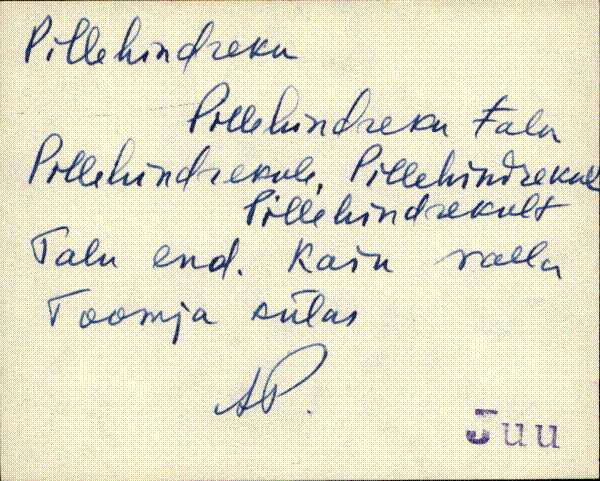 Pillehindreku
Pillehindreku talu
Pillehindrekule, Pillehindrekul
Pillehindrekult
Talu end. Kaiu valla
Toomja külas
AP.
Juu